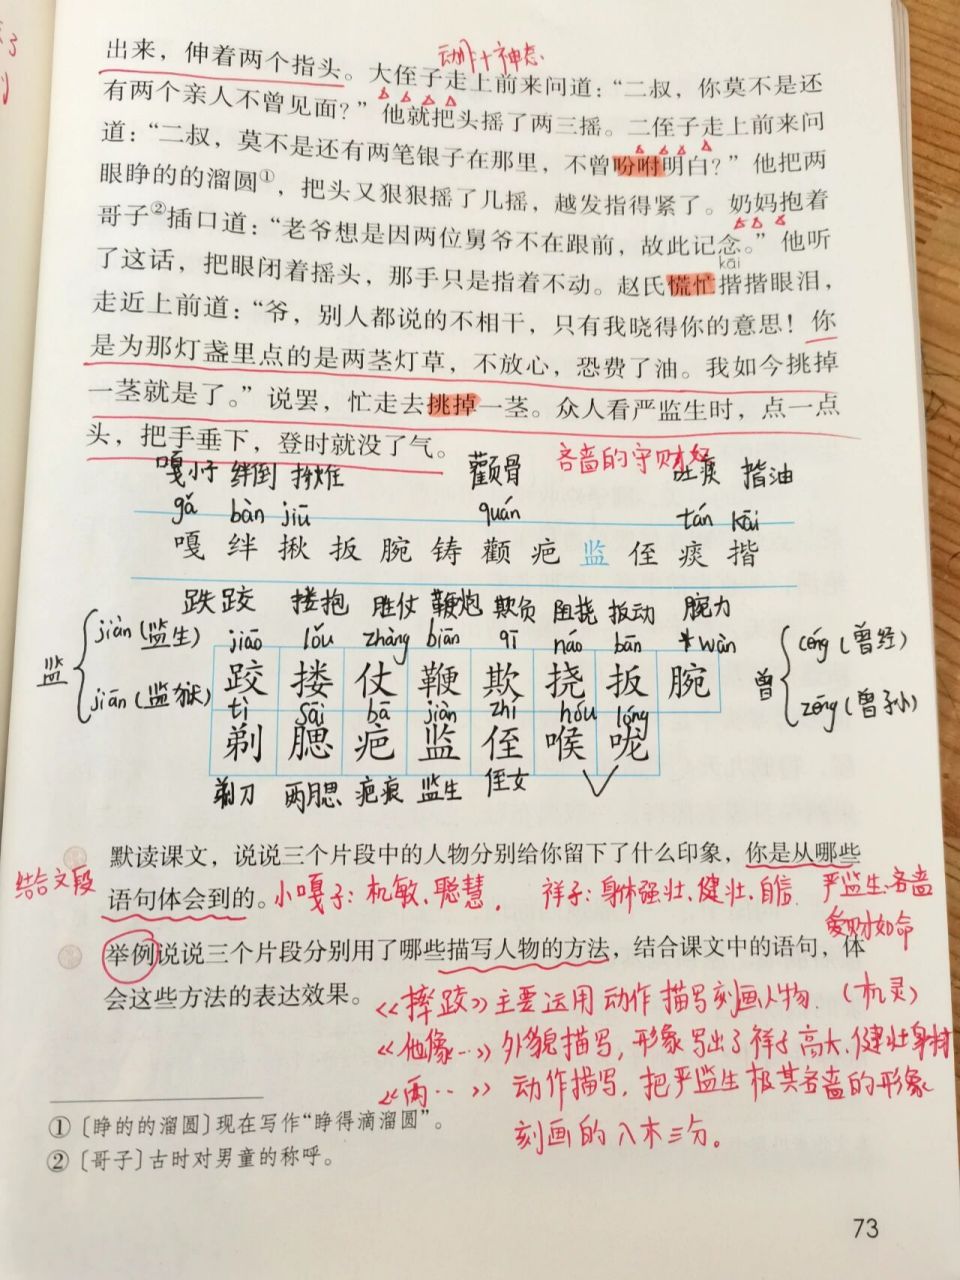 动作+神态
出来，伸着两个指头。大侄子走上前来问道：“二叔，你莫不是还
有两个亲人不曾见面？”他就把头摇了两三摇。二侄子走上前来问
道：“二叔，莫不是还有两笔银子在那里，不曾吩咐明白？”他把两
眼睁的的溜圆①，把头又狠狠摇了几摇，越发指得紧了。奶妈抱着
哥子②插口道：“老爷想是因两位舅爷不在跟前，故此记念。”他听
kāi
了这话，把眼闭着摇头，那手只是指着不动。赵氏慌忙揩揩眼泪，
走近上前道：“爷，别人都说的不相干，只有我晓得你的意思！你
是为那灯盏里点的是两茎灯草，不放心，恐费了油。我如今挑掉
一茎就是了。”说罢，忙走去挑掉一茎。众人看严监生时，点一点
头，把手垂下，登时就没了气。
吝啬的守财奴
嘎小子 绊倒 颧骨 吐痰 揩油
gǎ bàn jiū quán tán kāi
嘎 绊 揪 扳 腕 铸 颧 疤 监 侄 痰 揩
跌跤 搂抱 胜仗 鞭炮 欺负 阻挠 扳动 腕力
jiāo lǒu zhàng biān qī náo bān *wàn
跤 搂 仗 鞭 欺 挠 扳 腕
tì sāi bā jiàn zhí hóu lóng
剃 腮 疤 监 侄 喉 咙
剃刀 两腮 疤痕 监生 侄女
监
jiàn（监生）
jiān（监狱）
曾
céng（曾经）
zēng（曾子小）
默读课文，说说三个片段中的人物分别给你留下了什么印象，你是从哪些
语句体会到的。
结合文段
小嘎子：机敏、聪慧， 祥子：身体强壮、健壮、自信 严监生：吝啬
爱财如命
举例说说三个片段分别用了哪些描写人物的方法，结合课文中的语句，体
会这些方法的表达效果。
《摔跤》主要运用动作描写刻画人物.（机灵）
《他像…》外貌描写，形象写出了祥子高大、健壮身材
《两…》动作描写，把严监生极其吝啬的形象
刻画的入木三分。
①〔睁的的溜圆〕现在写作“睁得滴溜圆”。
②〔哥子〕古时对男童的称呼。
73